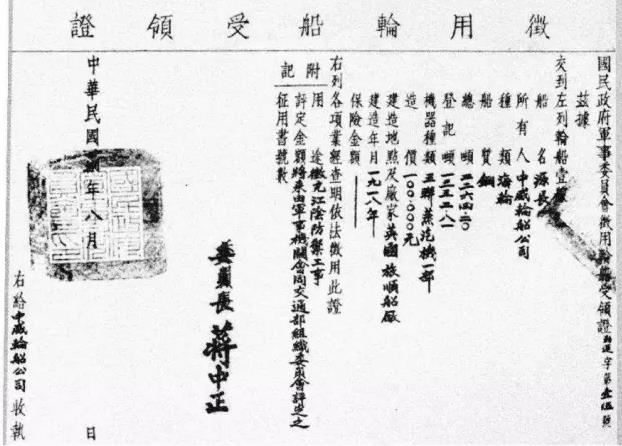 徵用輪船受領證
國民政府軍事委員會徵用輪船受領證 字第壹伍號
茲據
交到左列輪船壹艘
船名 源長
所有人 中威輪船公司
種類 海輪
船質 鋼
總噸 二二六四·二〇
登記噸 一三五二·八一
機器種類 三聯蒸汽機一部
造價 一〇〇·〇〇〇元
建造地點及廠家 英國旅順船廠
建造年月 一九一八年
保險金額
右列各項業經查明依法徵用此證
附記
用途 徵充江陰防禦工事
評定金額 將來由軍事機關會同交通部組織委員會評定之
征用書號數
委員長 蔣中正
中華民國 年八月 日
右給中威輪船公司收執